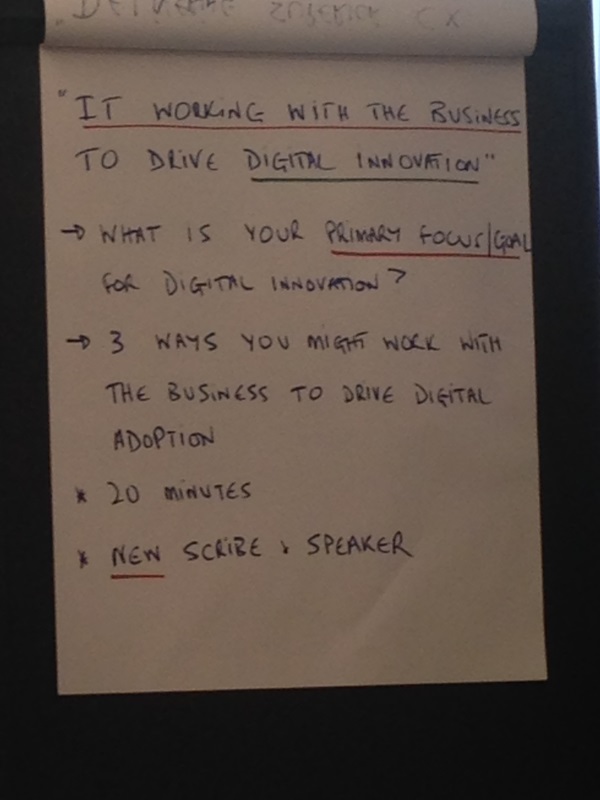 "IT WORKING WITH THE BUSINESS
TO DRIVE DIGITAL INNOVATION"
→ WHAT IS YOUR PRIMARY FOCUS/GOAL
FOR DIGITAL INNOVATION?
→ 3 WAYS YOU MIGHT WORK WITH
THE BUSINESS TO DRIVE DIGITAL
ADOPTION
* 20 MINUTES
* NEW SCRIBE & SPEAKER